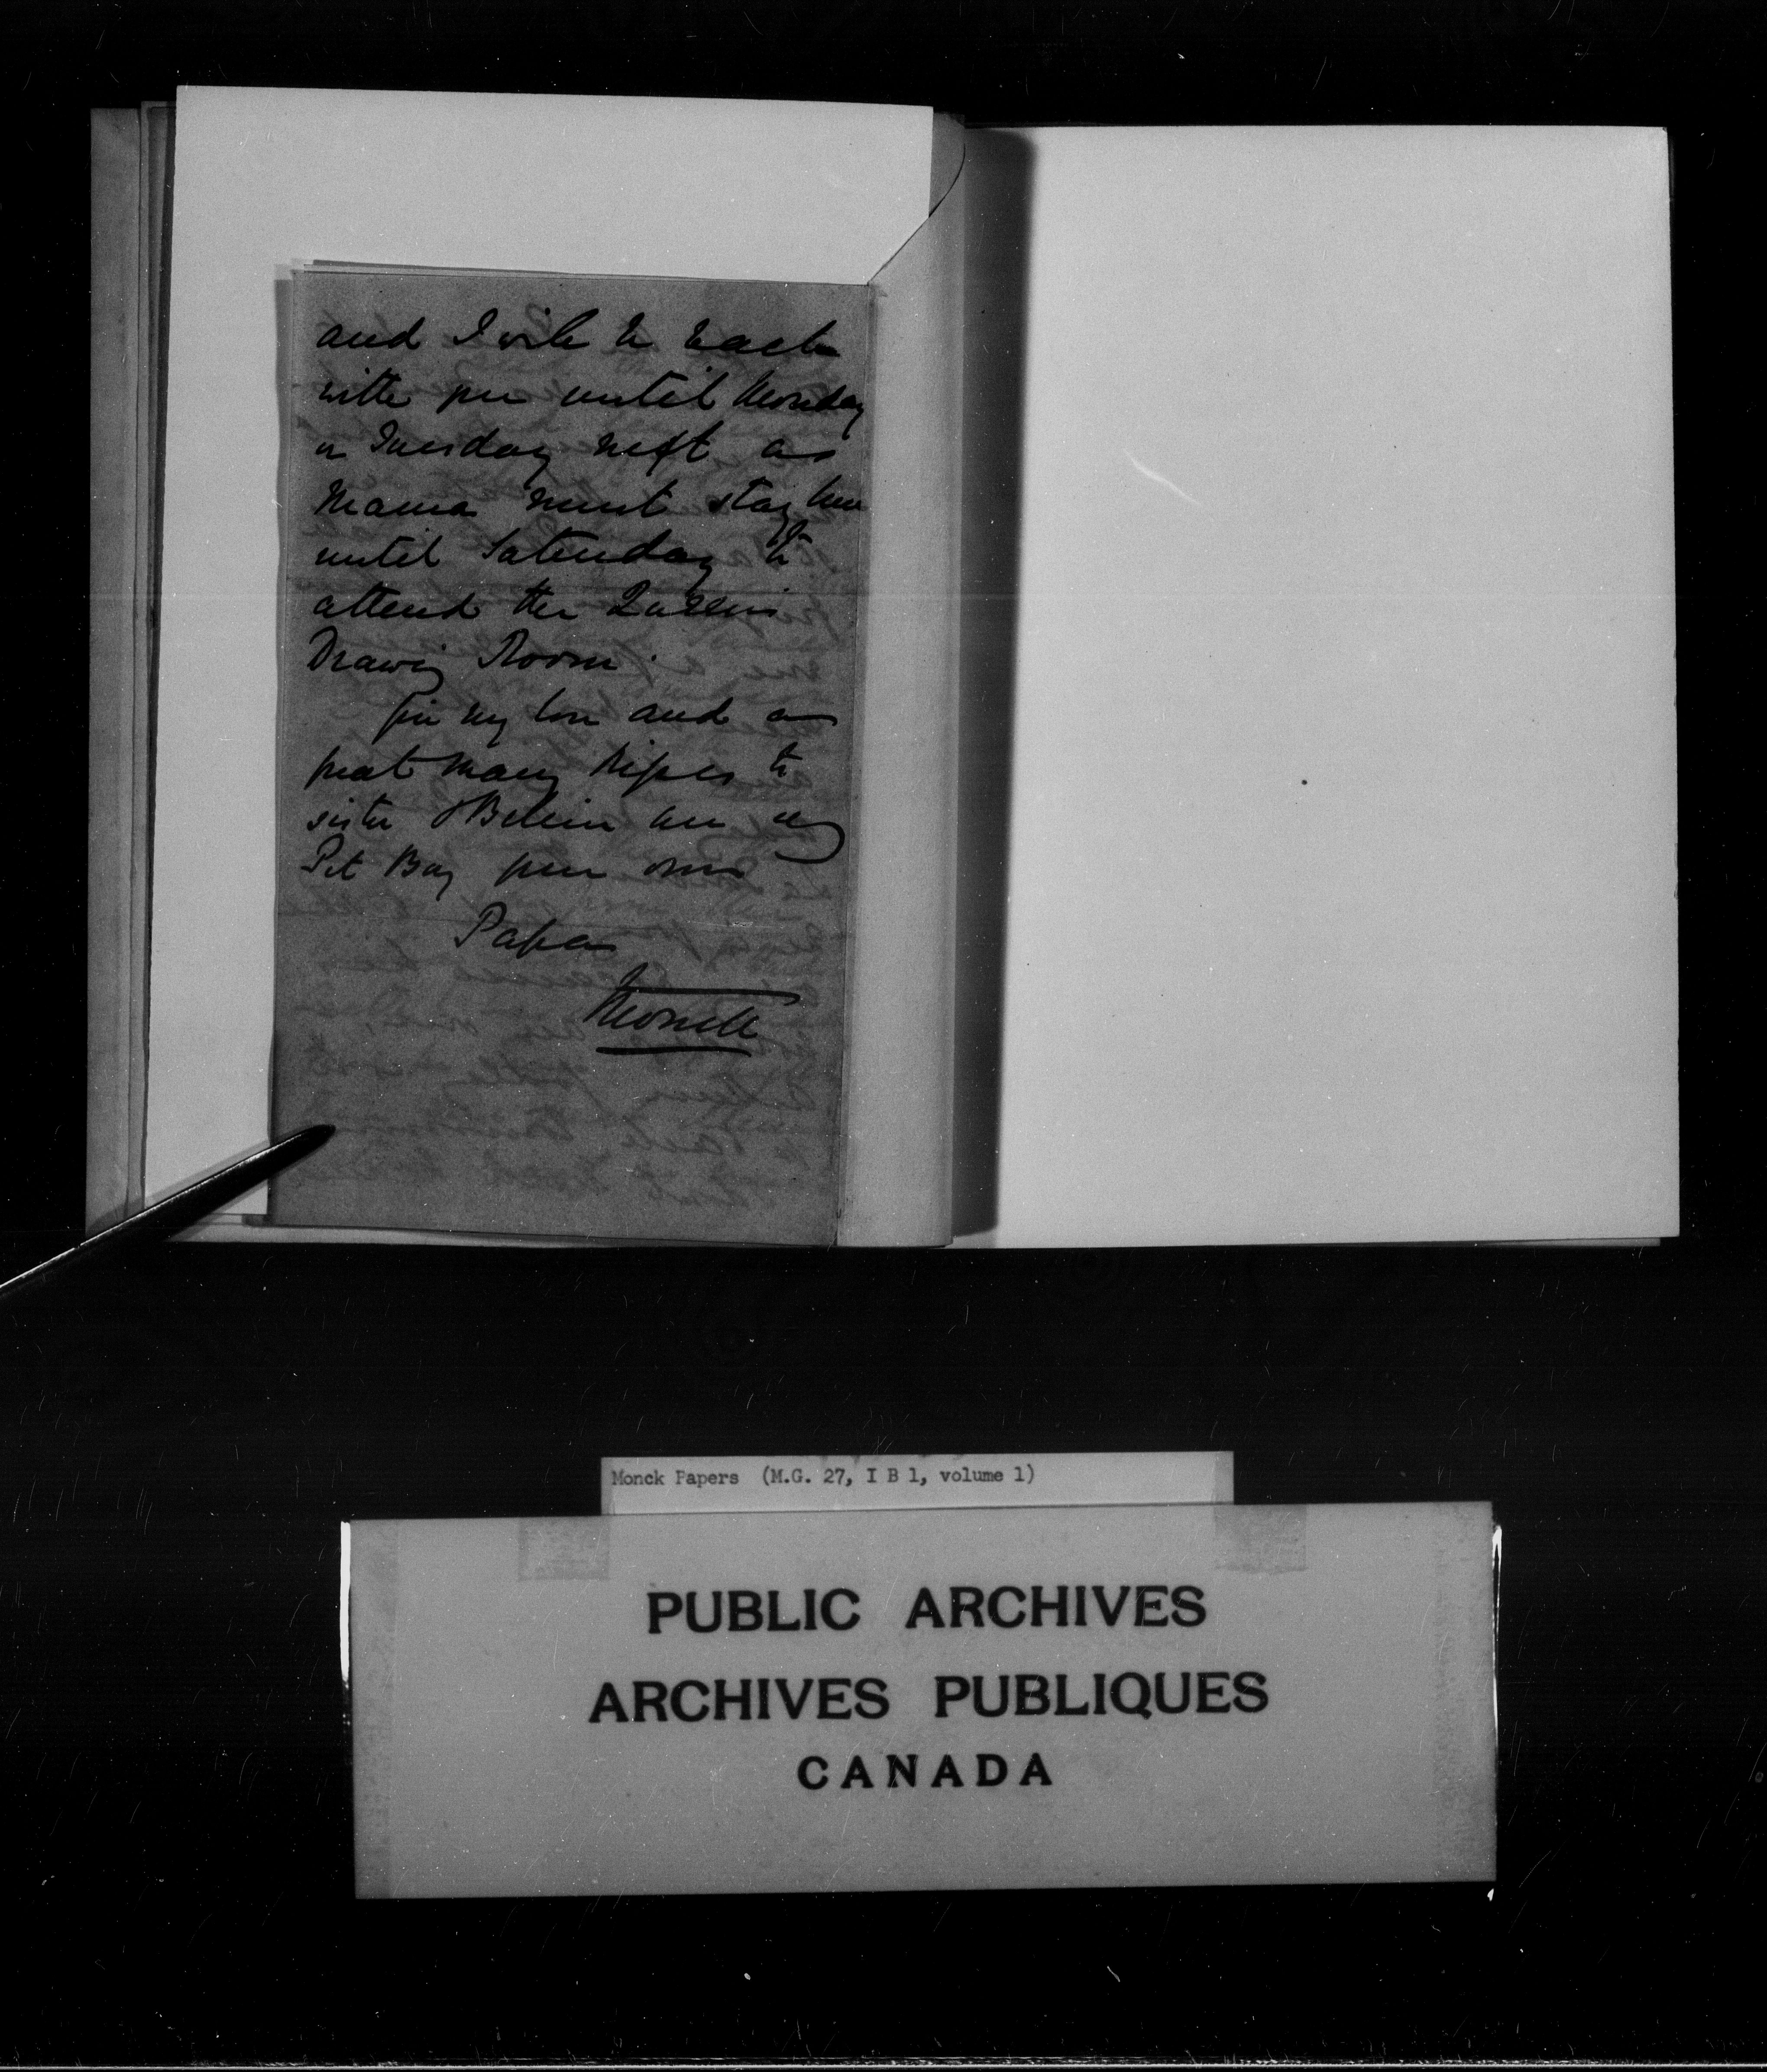 and I will be back
with you until Monday
or Tuesday next as
Mama must stay here
until Saturday to
attend the Queens
Drawing Room.
Give my love and a
great many kisses to
sister & Believe me my
Pet Boy your own
Papa
Monck
Monck Papers (M.G. 27, I B 1, volume 1)
PUBLIC ARCHIVES
ARCHIVES PUBLIQUES
CANADA